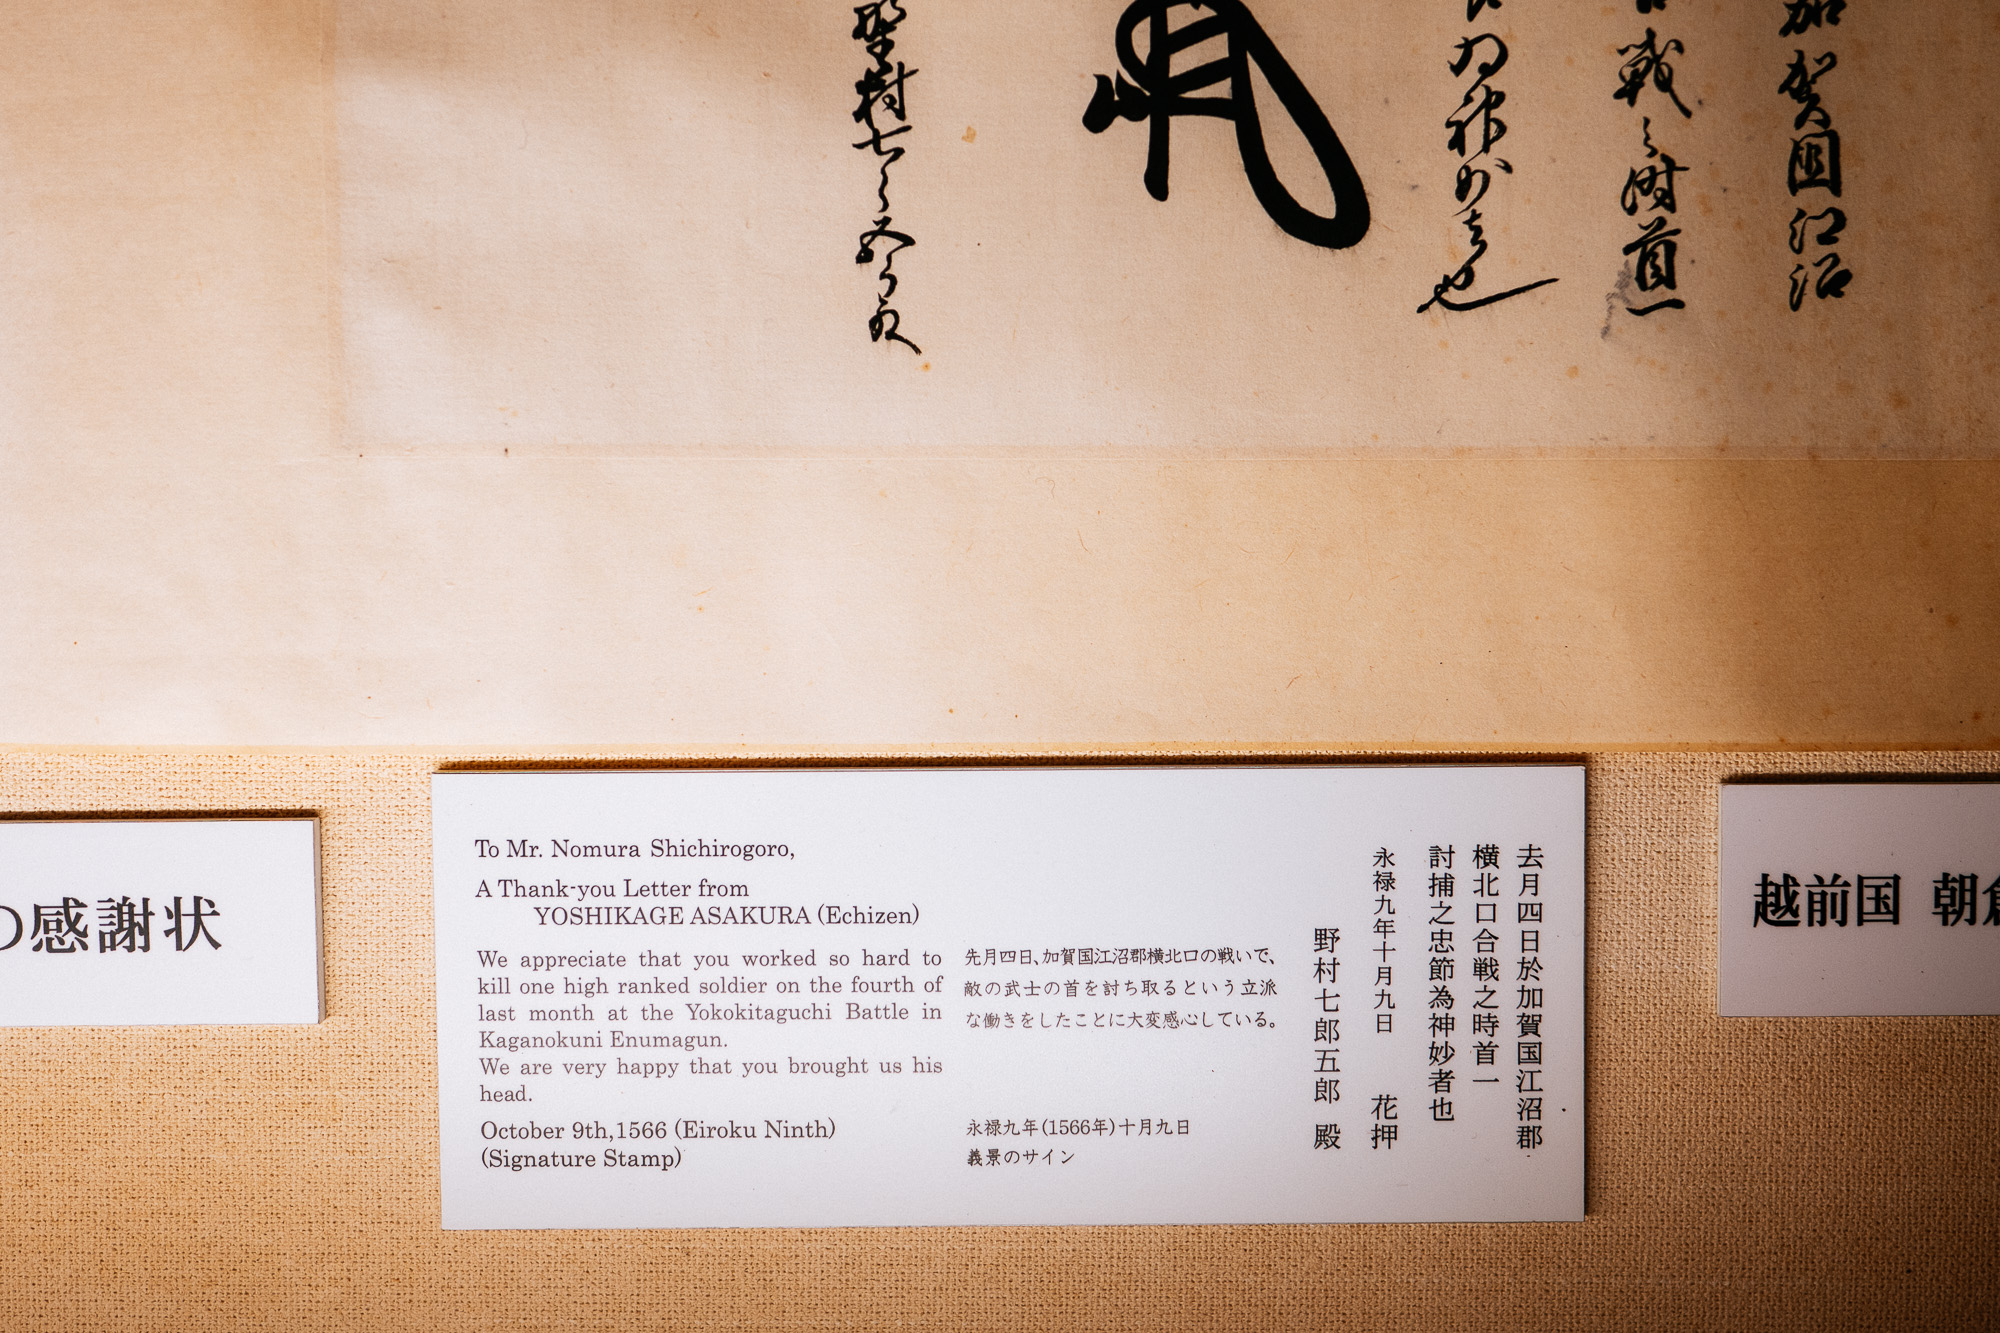 加賀国江沼
戦之時首一
為神妙者也
野村七郎五郎殿
の感謝状
To Mr. Nomura Shichirogoro,
A Thank-you Letter from
YOSHIKAGE ASAKURA (Echizen)
We appreciate that you worked so hard to
kill one high ranked soldier on the fourth of
last month at the Yokokitaguchi Battle in
Kaganokuni Enumagun.
We are very happy that you brought us his
head.
October 9th,1566 (Eiroku Ninth)
(Signature Stamp)
先月四日、加賀国江沼郡横北口の戦いで、
敵の武士の首を討ち取るという立派
な働きをしたことに大変感心している。
永禄九年(1566年)十月九日
義景のサイン
去月四日於加賀国江沼郡
横北口合戦之時首一
討捕之忠節為神妙者也
永禄九年十月九日 花押
野村七郎五郎 殿
越前国 朝倉